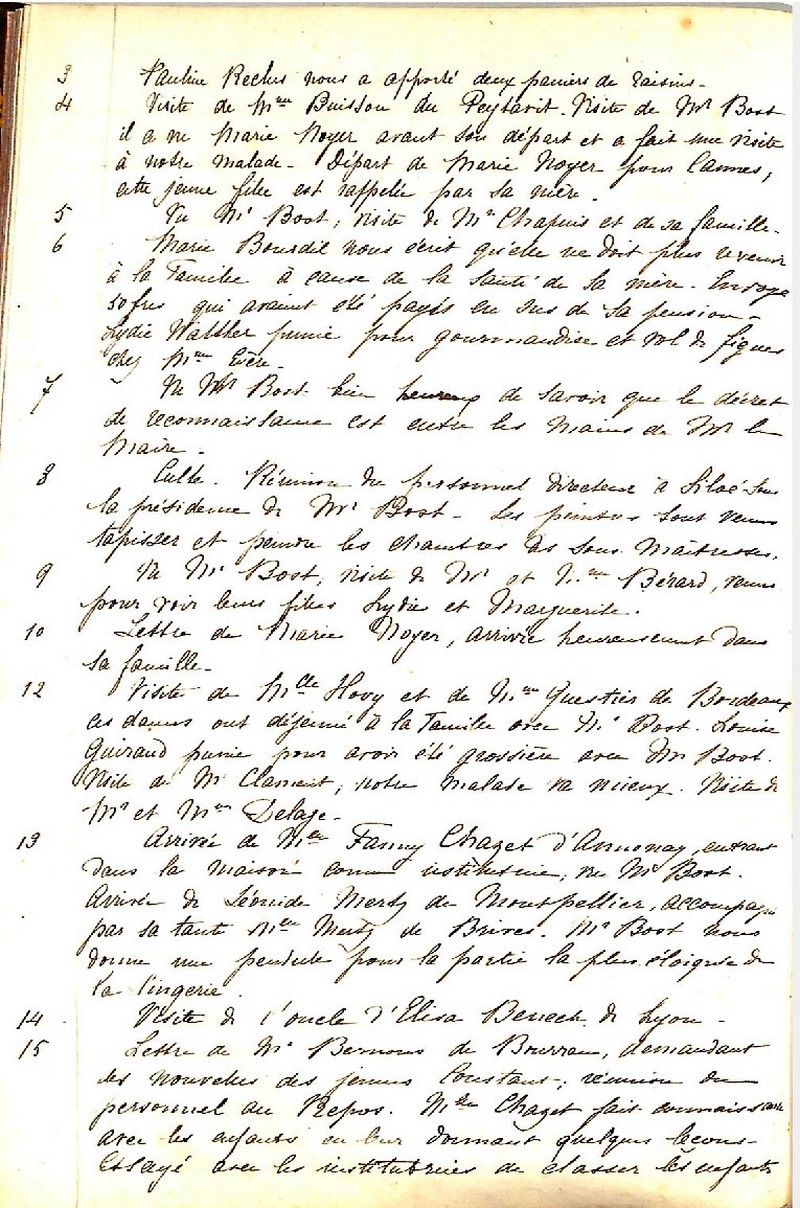 3 Pauline Reclus nous a apporté deux paniers de raisins.
4 Visite de Mme Buisson du Peytavit. Visite de Mr Bost
il a vu Marie Noyer avant son départ et a fait une visite
à notre malade. Départ de Marie Noyer pour Cannes,
cette jeune fille est rappelée par sa mère.
5 Vu Mr Bost, visite de Mr Chapuis et de sa famille.
6 Marie Bourdil nous écrit qu'elle ne doit plus revenir
à la Famille à cause de la santé de sa mère. Envoyé
50 frcs qui avaient été payés en sus de sa pension.
Lydie Walther punie pour gourmandise et vol de figues
chez Mme
7 Vu Mr Bost bien heureux de savoir que le décret
de reconnaissance est entre les mains de Mr le
Maire.
8 Culte. Réunion du personnel directeur à Siloé sous
la présidence de Mr Bost. Les peintres sont venus
tapisser et peindre les chambres des sous-maîtresses.
9 Vu Mr Bost, visite de Mr et Mme Bérard, venus
pour voir leurs filles Lydie et Marguerite.
10 Lettre de Marie Noyer, arrivée heureusement dans
sa famille.
12 Visite de Mlle Hovy et de Mme Questier de Bordeaux
ces dames ont déjeuné à la Famille avec Mr Bost. Louise
Guiraud punie pour avoir été grossière avec Mr Bost.
Visite de Mr Clament, notre malade va mieux. Visite de
Mr et Mme Delage.
13 Arrivée de Mlle Fanny Chazet d'Annonay, entrant
dans la maison comme institutrice, vu Mr Bost.
Arrivée de Léonide Mertz de Montpellier, accompagnée
par sa tante Mlle Mertz de Brives. Mr Bost nous
donne une pendule pour la partie la plus éloignée de
la lingerie.
14 Visite de l'oncle d'Elisa Benech de Lyon.
15 Lettre de Mr Bernous de Bourrau, demandant
des nouvelles des jeunes Constant, réunion du
personnel au Repos. Mlle Chazet fait connaissance
avec les enfants en leur donnant quelques leçons.
Essayé avec les institutrices de classer les enfants